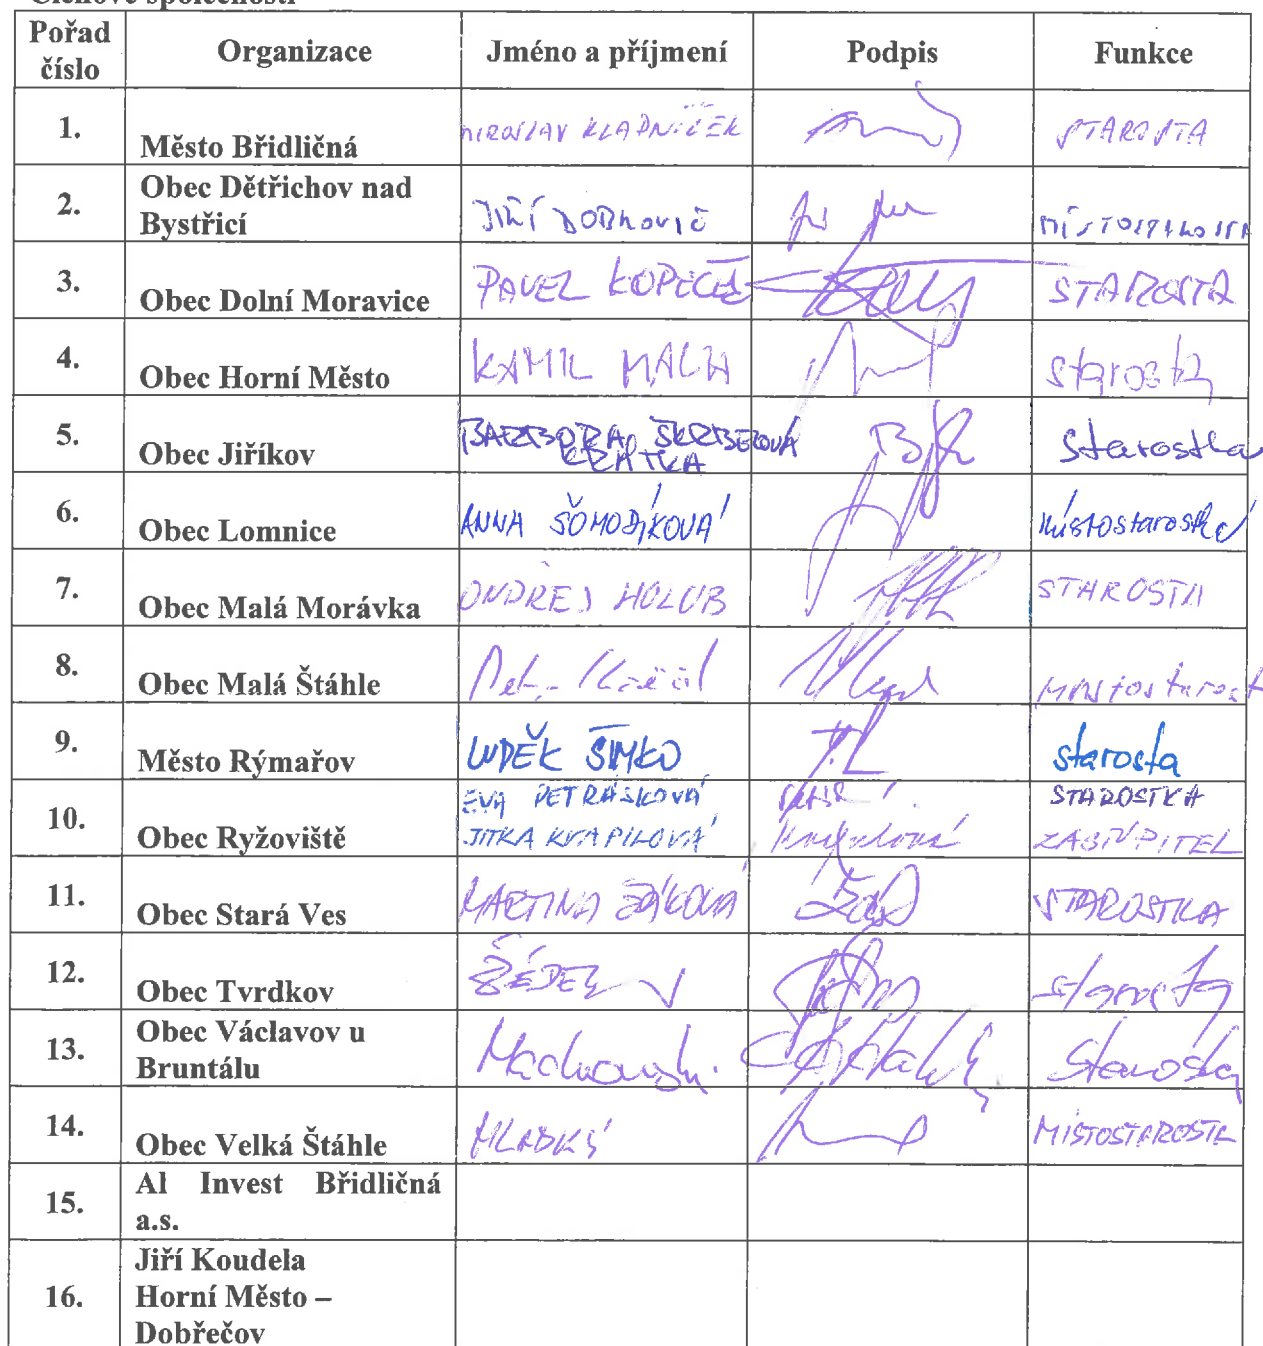 Pořad číslo Organizace Jméno a příjmení Podpis Funkce
1. Město Břidličná MIROSLAV KLADNÍČEK STAROSTA
2. Obec Dětřichov nad Bystřicí JIŘÍ MÍSTOSTAROSTA
3. Obec Dolní Moravice PAVEL KOPEČEK STAROSTA
4. Obec Horní Město KAMIL MACH starosta
5. Obec Jiříkov BARBORA KRÁTKÁ starostka
6. Obec Lomnice ANNA ŠOMODÍKOVÁ místostarostka
7. Obec Malá Morávka ONDŘEJ HOLUB STAROSTA
8. Obec Malá Štáhle Petr
9. Město Rýmařov LUDĚK ŠIMKO starosta
10. Obec Ryžoviště EVA PETRÁŠKOVÁ STAROSTKA
JITKA KVAPILOVÁ Kvapilová ZASTUPITEL
11. Obec Stará Ves MARTINA ŽÁKOVÁ STAROSTKA
12. Obec Tvrdkov starosta
13. Obec Václavov u Bruntálu starosta
14. Obec Velká Štáhle HLADKÝ MÍSTOSTAROSTA
15. Al Invest Břidličná a.s.
16. Jiří Koudela
Horní Město –
Dobřečov